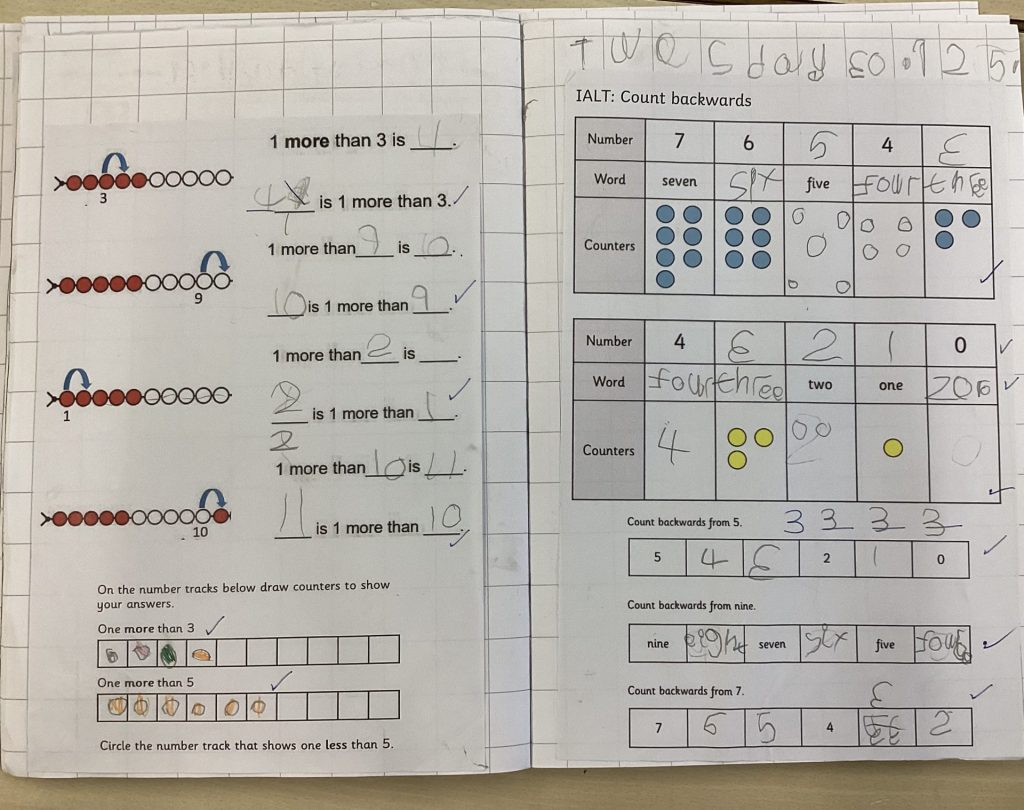 1 more than 3 is 4.
3
4 is 1 more than 3.
1
1 more than 9 is 10.
9
10 is 1 more than 9.
1 more than 2 is ___.
1
2 is 1 more than 1.
2
1 more than 10 is 11.
10
11 is 1 more than 10.
On the number tracks below draw counters to show
your answers.
One more than 3
One more than 5
Circle the number track that shows one less than 5.
Tuesday 30.9.25.
IALT: Count backwards
Number 7 6 5 4 3
Word seven six five four three
Counters
Number 4 3 2 1 0
Word four three two one
Counters 4 2 0
Count backwards from 5. 3 3 3 3
5 4 3 2 1 0
Count backwards from nine.
nine eight seven six five four
Count backwards from 7.
3
7 6 5 4 2